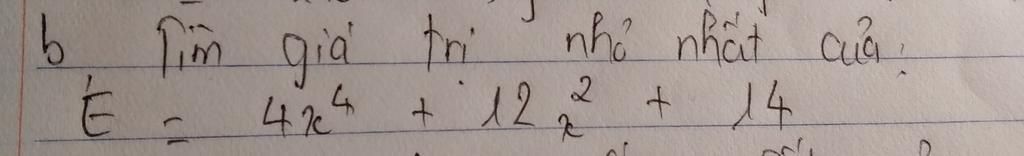 b Tìm giá trị nhỏ nhất của:
E = 4x⁴ + 12x² + 14